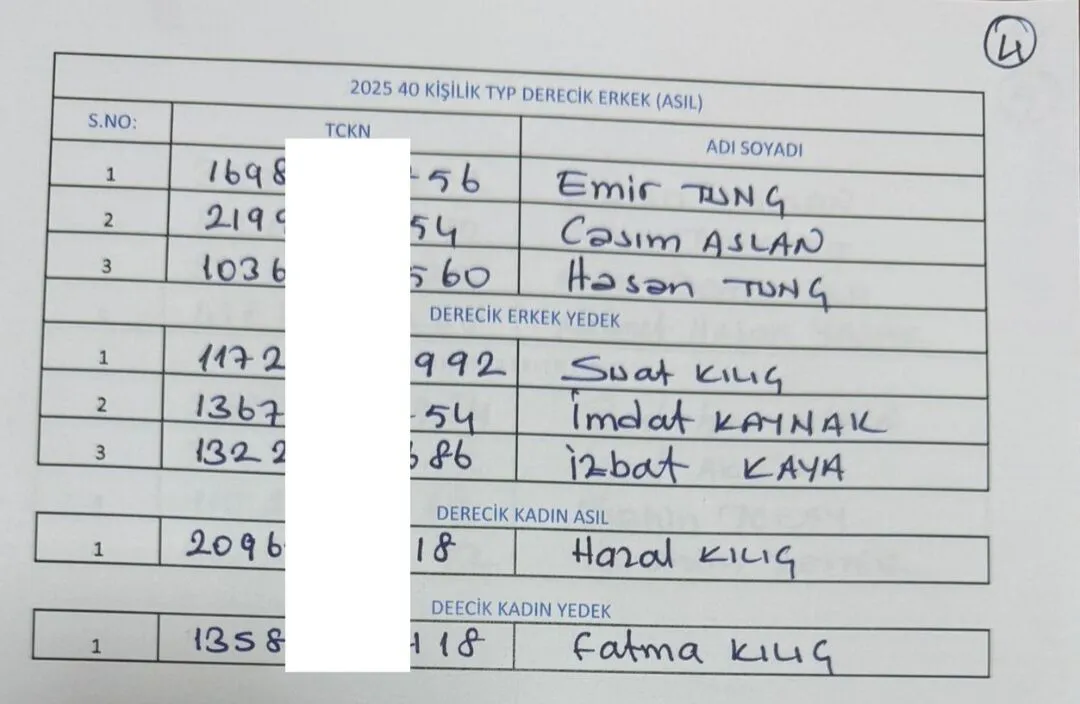 4
2025 40 KİŞİLİK TYP DERECİK ERKEK (ASIL)
S.NO: TCKN ADI SOYADI
1 1698 56 Emir TUNÇ
2 2199 54 Casım ASLAN
3 1036 560 Hasan TUNÇ
DERECİK ERKEK YEDEK
1 1172 992 Suat KILIÇ
2 1367 54 İmdat KAYNAK
3 1322 86 İzbat KAYA
DERECİK KADIN ASIL
1 2096 18 Hazal KILIÇ
DEECİK KADIN YEDEK
1 1358 118 Fatma KILIÇ